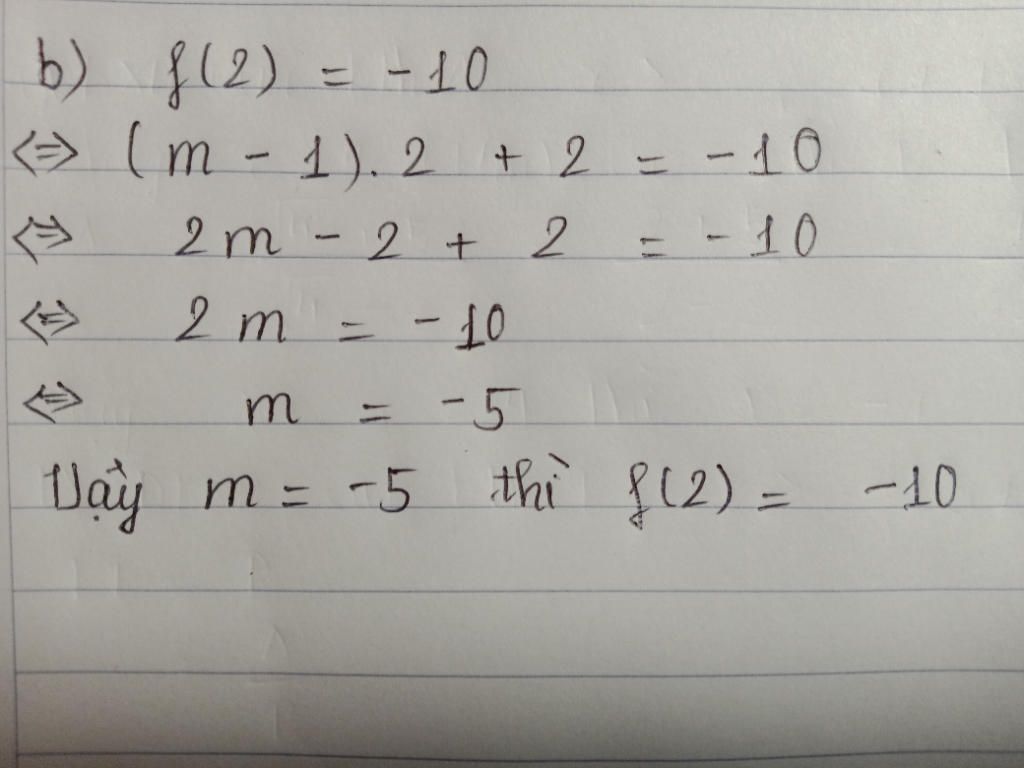 b) f(2) = -10
<=> (m - 1).2 + 2 = -10
<=> 2m - 2 + 2 = -10
<=> 2m = -10
<=> m = -5
Vậy m = -5 thì f(2) = -10